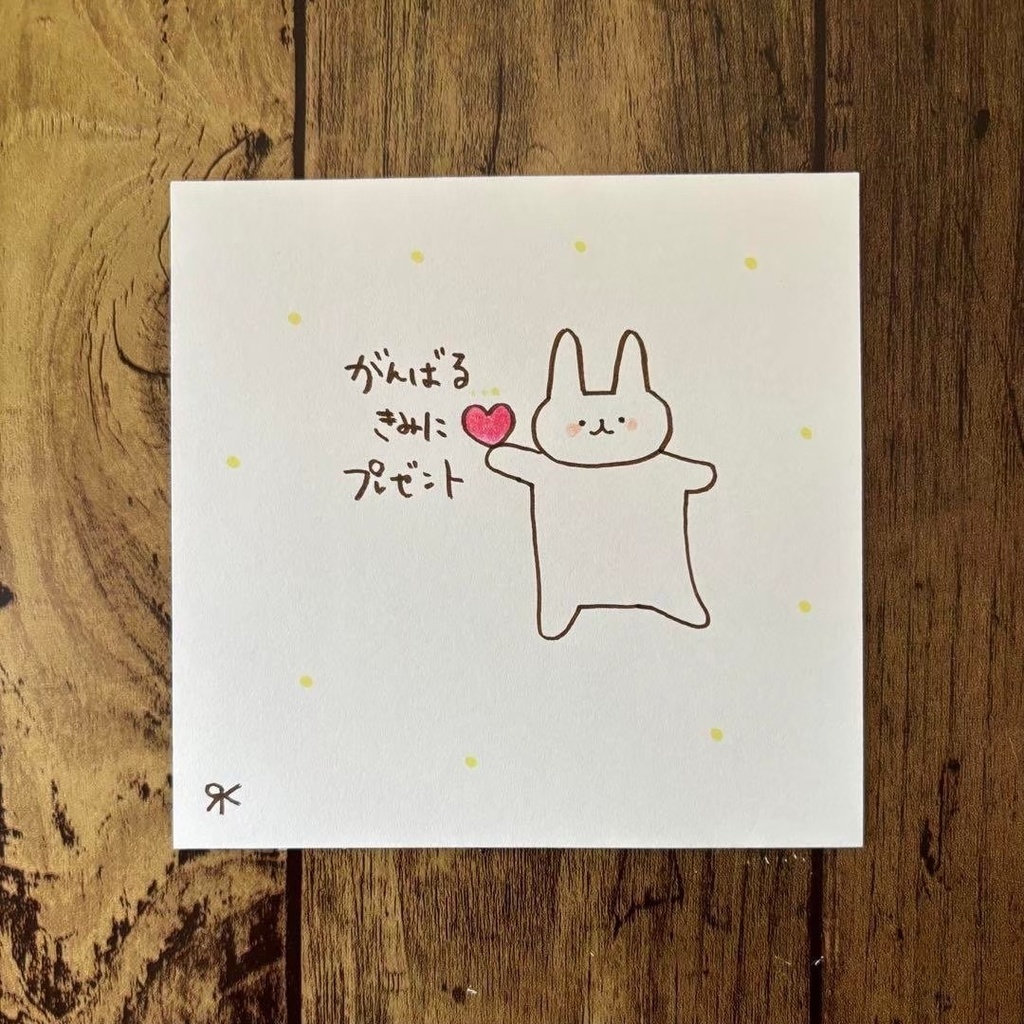 がんばる
きみに
プレゼント